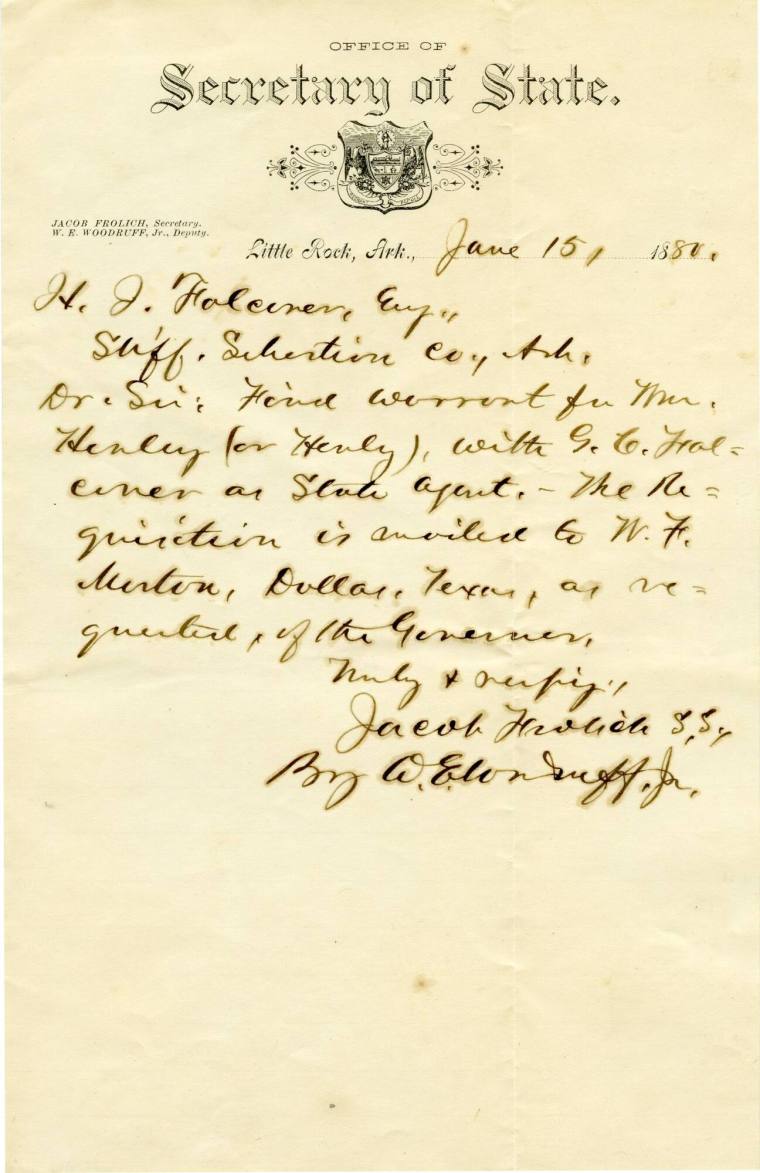 OFFICE OF
Secretary of State.
JACOB FROLICH, Secretary.
W. E. WOODRUFF, Jr., Deputy.
Little Rock, Ark., June 15, 1880.
H. J. Falconer, Esq.,
Shff. Sebastian Co., Ark.
Dr. Sir: Find warrant for Wm.
Henley (or Henly), with G. C. Fal=
coner as State Agent. – The Re=
quisition is mailed to W. F.
Morton, Dallas, Texas, as re=
quested, of the Governor.
Truly & respy.,
Jacob Frolich S. S.,
By W. E. Woodruff, Jr.